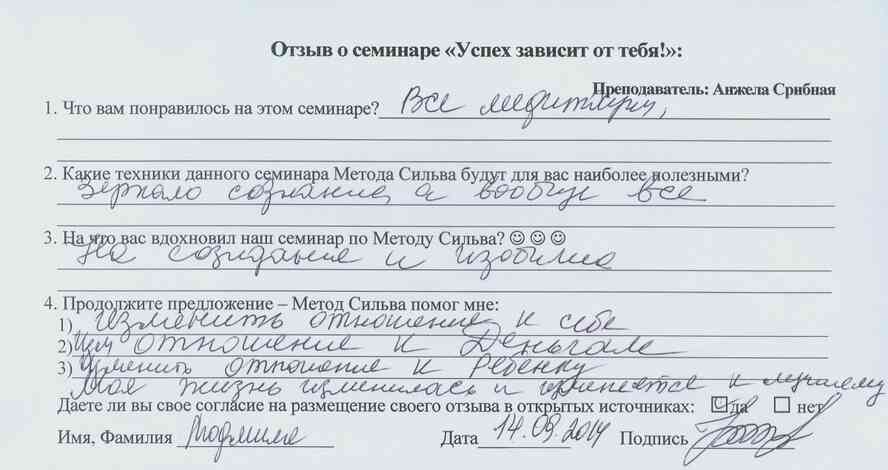 Отзыв о семинаре «Успех зависит от тебя!»:
Преподаватель: Анжела Срибная
1. Что вам понравилось на этом семинаре? Все медитации,
2. Какие техники данного семинара Метода Сильва будут для вас наиболее полезными?
Зеркало сознания, а вообще все
3. На что вас вдохновил наш семинар по Методу Сильва? ☺☺☺
На созидания и изобилие
4. Продолжите предложение – Метод Сильва помог мне:
1) изменить отношение к себе
2) Изм отношение к Деньгам
3) Изменить отношение к Ребенку
Моя жизнь изменилась и изменяется к лучшему
Даете ли вы свое согласие на размещение своего отзыва в открытых источниках: ☑ да ☐ нет
Имя, Фамилия Людмила Дата 14.09.2014 Подпись